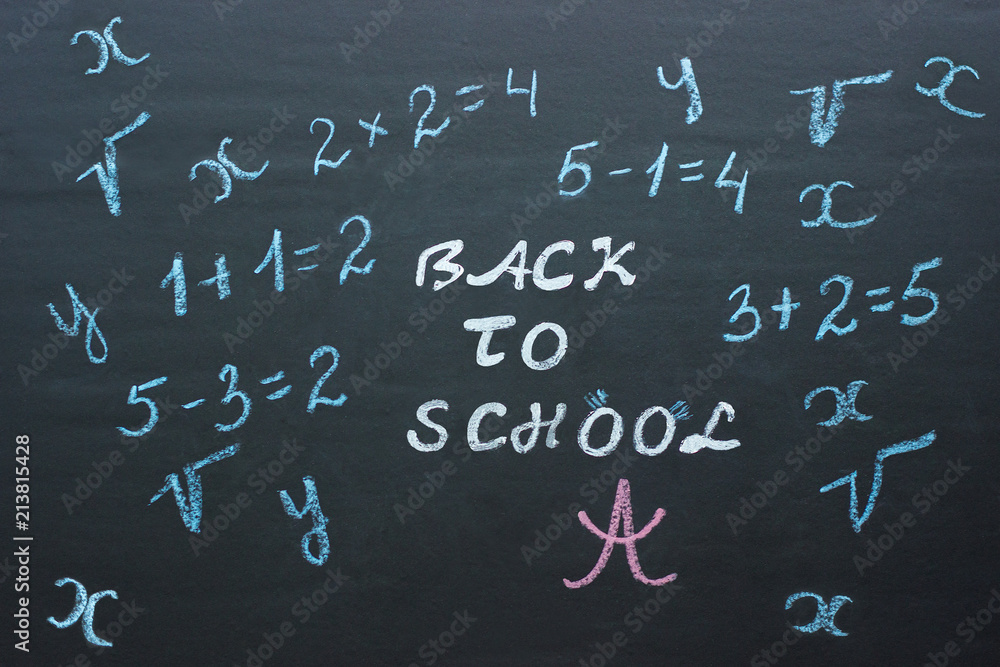 x
y
√
x
√
x
2×2=4
5-1=4
x
1+1=2
BACK
y
3+2=5
TO
5-3=2
x
SCHOOL
√
√
y
A
x
x
Adobe Stock | #213815428